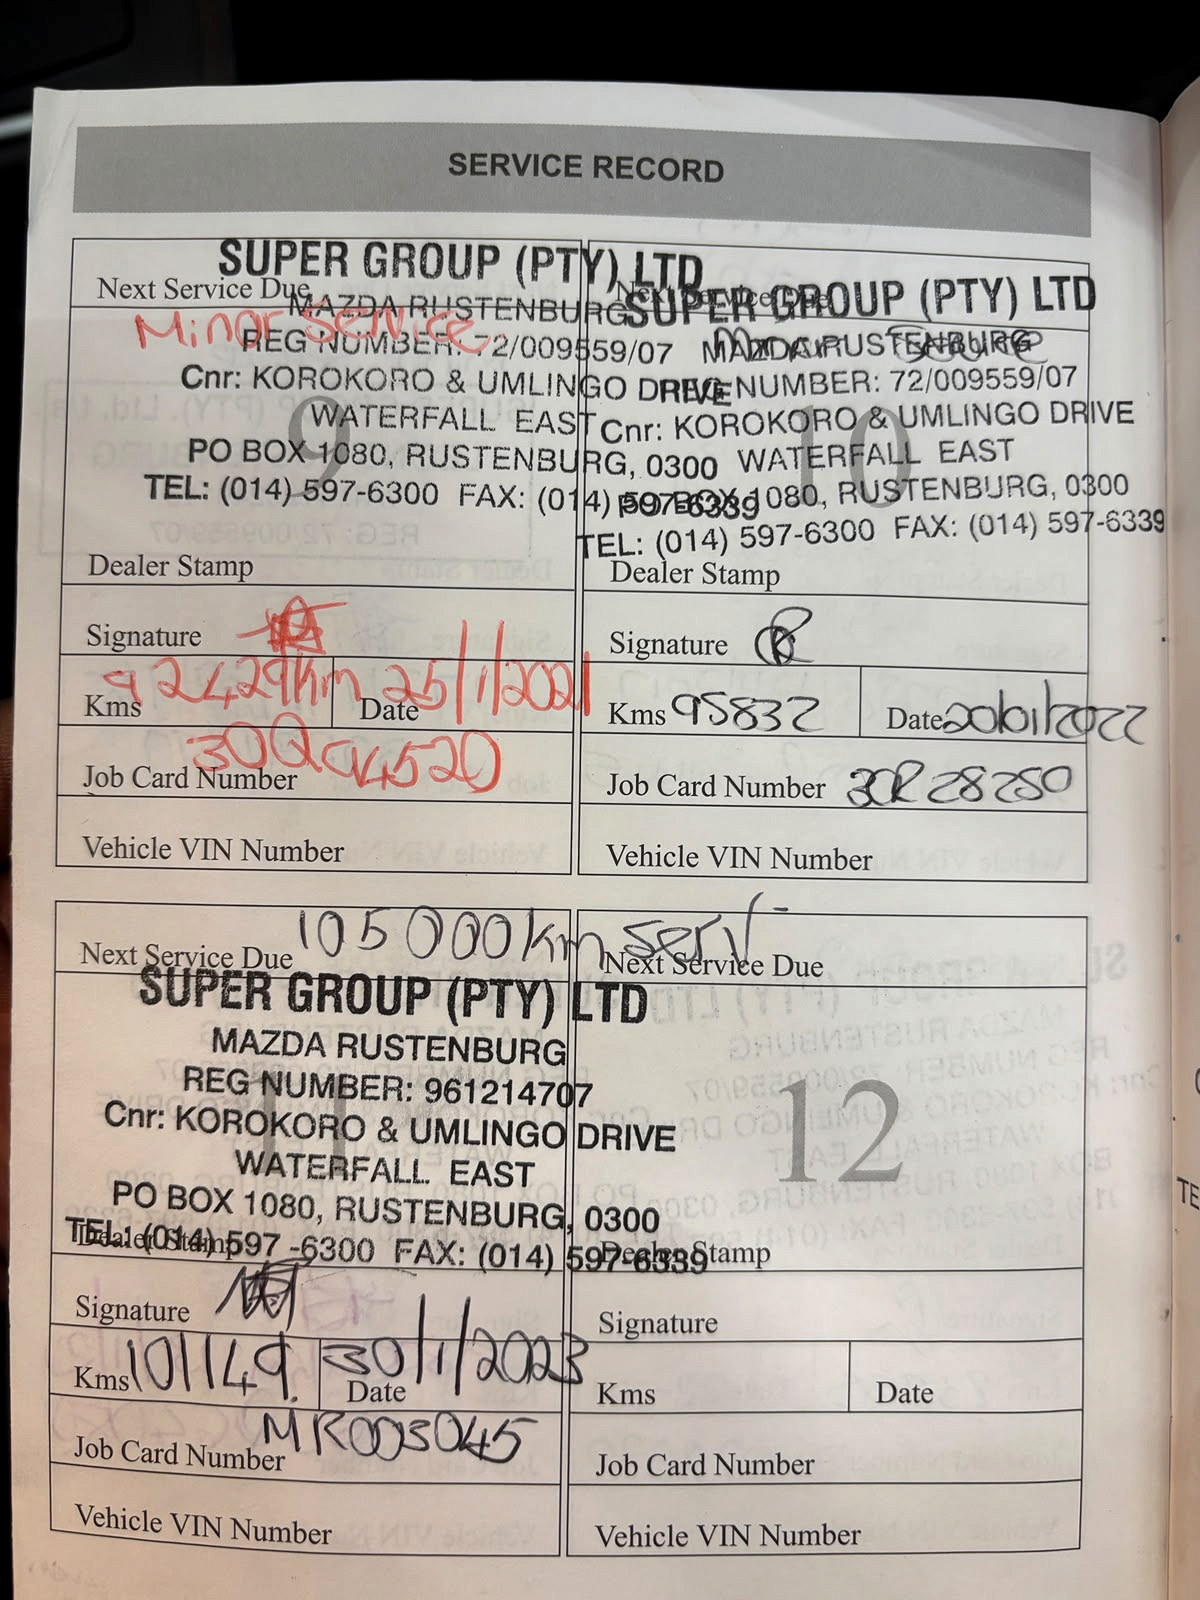 SERVICE RECORD
SUPER GROUP (PTY) LTD
Next Service Due
MAZDA RUSTENBURG
Minor Service
REG NUMBER: 72/009559/07
Cnr: KOROKORO & UMLINGO DRIVE
WATERFALL EAST
9
PO BOX 1080, RUSTENBURG, 0300
TEL: (014) 597-6300 FAX: (014) 597-6339
Dealer Stamp
Signature
Kms 92429km Date 25/1/2021
Job Card Number
Vehicle VIN Number
Next Service Due
SUPER GROUP (PTY) LTD
MAZDA RUSTENBURG
REG NUMBER: 72/009559/07
Cnr: KOROKORO & UMLINGO DRIVE
10
WATERFALL EAST
PO BOX 1080, RUSTENBURG, 0300
TEL: (014) 597-6300 FAX: (014) 597-6339
Dealer Stamp
Signature
Kms 95832 Date 20/01/2022
Job Card Number 30R28250
Vehicle VIN Number
Next Service Due 105 000km serv
SUPER GROUP (PTY) LTD
MAZDA RUSTENBURG
REG NUMBER: 961214707
Cnr: KOROKORO & UMLINGO DRIVE
11
WATERFALL EAST
PO BOX 1080, RUSTENBURG, 0300
TEL: (014) 597-6300 FAX: (014) 597-6339
Dealer Stamp
Signature
Kms 101149. Date 30/1/2023
Job Card Number MR003045
Vehicle VIN Number
Next Service Due
12
Dealer Stamp
Signature
Kms Date
Job Card Number
Vehicle VIN Number